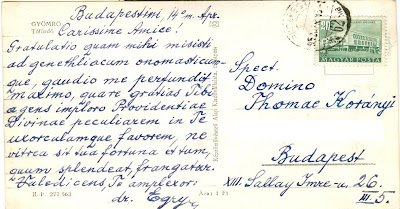 GYÖMRŐ
Budapestini, 14º m. Apr.
Carissime Amice!
Gratulatio quam mihi misisti
ad genethliacum onomasticum-
que, gaudio me perfundit
maximo, quare gratias Tibi
agens imploro Providentiae
Divinae peculiarem in Te
uxorculamque favorem, ne
vitrea sit tua fortuna et tum,
quum splendeat, frangatur.
Valedicens Te amplexor:
dr. Egry
Képzőművészeti Alap Kiadóvállalata, Budapest
Ára: 1 Ft
MAGYAR POSTA
Spect.
Domino
Thomae Korányi
Budapest
XIII. Sallay Imre-u. 26.
III. 5.